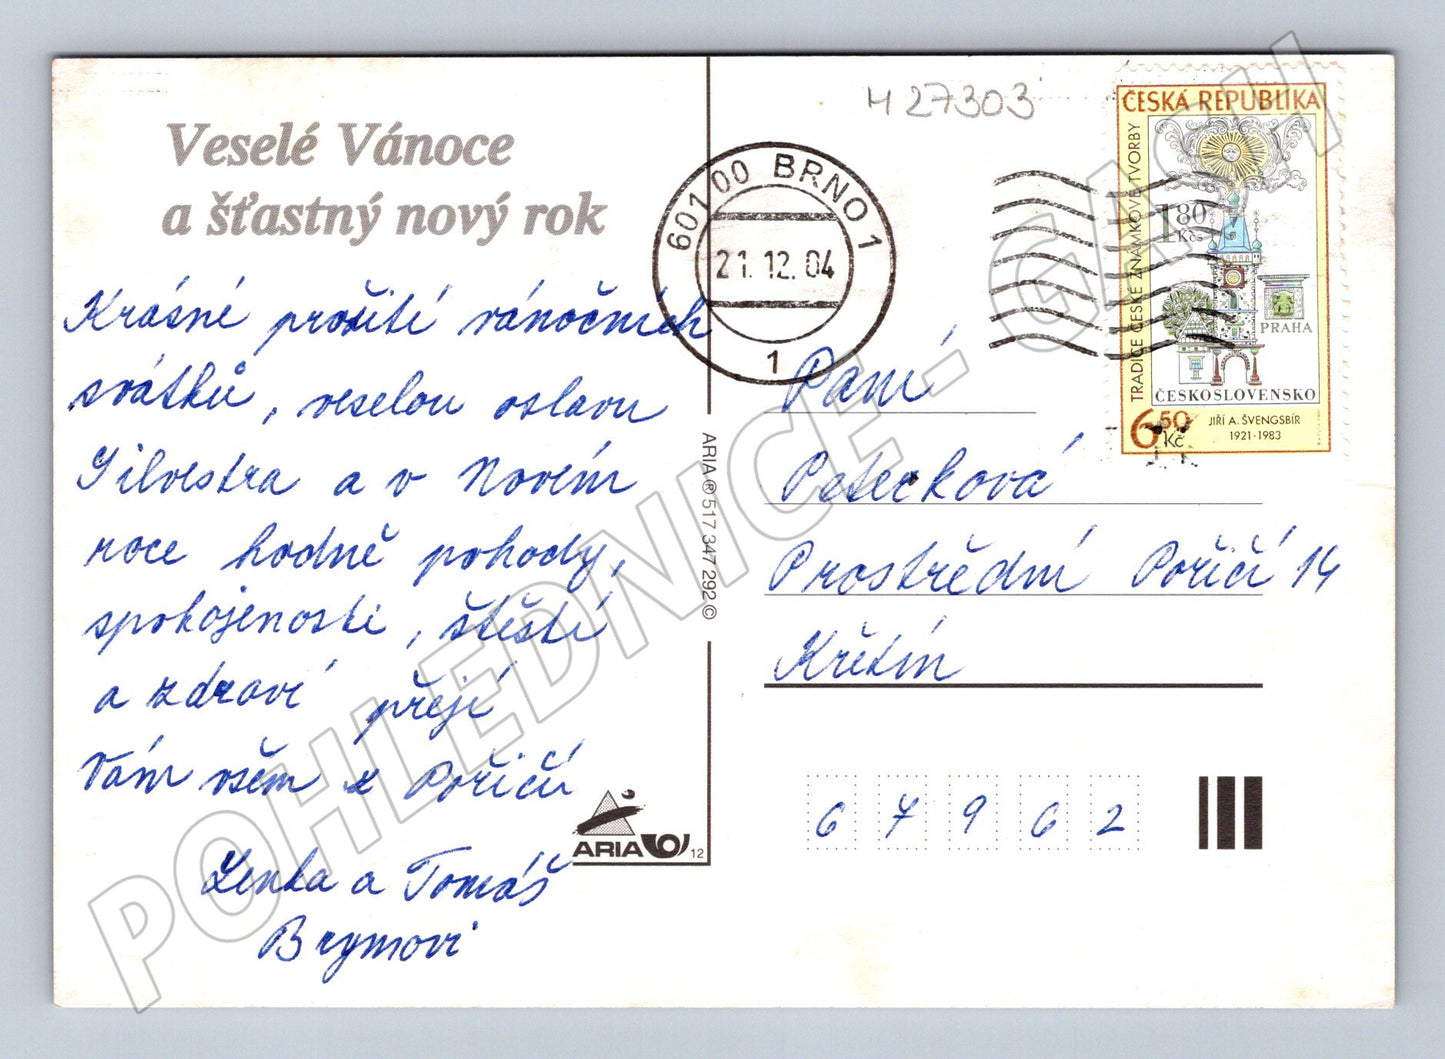 Veselé Vánoce
a šťastný nový rok
Krásné prožití vánočních
svátků, veselou oslavu
Silvestra a v Novém
roce hodně pohody,
spokojenosti, štěstí
a zdraví přejí
Vám všem z Poříčí
Lenka a Tomáš
Brymovi
ARIA
12
ARIA ® 517 347 292 ©
601 00 BRNO 1
21.12.04
1
H 27303
ČESKÁ REPUBLIKA
TRADICE ČESKÉ ZNÁMKOVÉ TVORBY
1 80
Kčs
PRAHA
ČESKOSLOVENSKO
6 50
Kč
JIŘÍ A. ŠVENGSBÍR
1921-1983
Paní
Peterková
Prostřední Poříčí 14
Křetín
6 7 9 6 2
POHLEDNICE - GASH